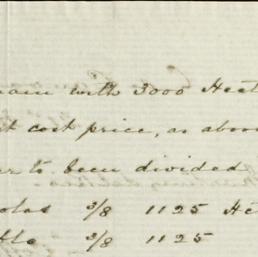 with 3000 Heat
cost price, as above
to been divided
olas 3/8 1125 He
3/8 1125